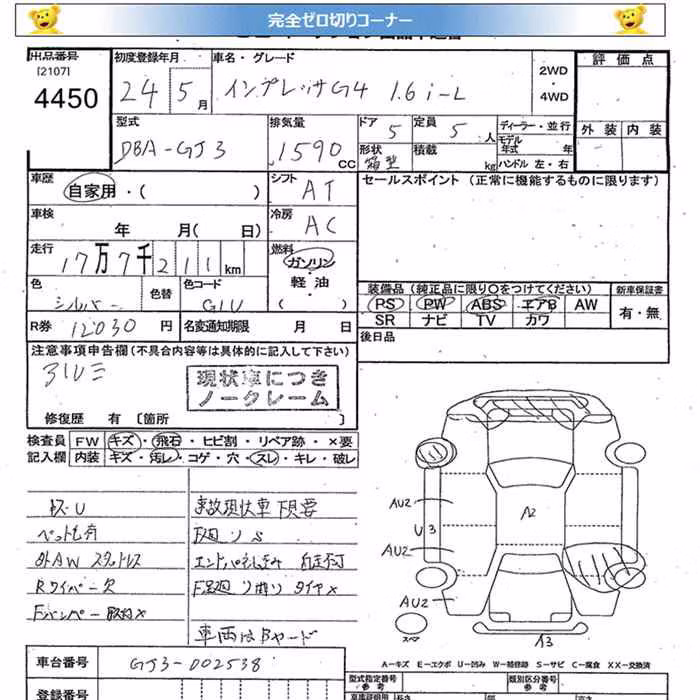 完全ゼロ切りコーナー
出品番号 初度登録年月 車名・グレード 2WD・4WD 評価点
[2107]
4450 24 5月 インプレッサG4 1.6i-L
型式 排気量 ドア 定員 ディーラー・並行 外装 内装
DBA-GJ3 1590CC 5 5人 モデル年式 年
形状 箱型 積載 kg ハンドル 左・右
車歴 自家用・( ) シフト AT セールスポイント (正常に機能するものに限ります)
車検 年 月( 日) 冷房 AC
走行 17万7千211km 燃料 ガソリン・軽油 ( )
色 シルバー 色替 色コード G1U
装備品 (純正品に限り○をつけてください) 新車保証書
PS PW ABS エアB AW 有・無
SR ナビ TV カワ
R券 12030円 名変通知期限 月 日 後日品
注意事項申告欄(不具合内容等は具体的に記入して下さい)
現状車につき
ノークレーム
修復歴 有 〔箇所 〕
検査員 FW キズ・飛石・ヒビ割・リペア跡・×要
記入欄 内装 キズ・汚レ・コゲ・穴・スレ・キレ・破レ
事故現状車 下見要
ペット毛有
外AW スタッドレス
Rワイパー欠
Fバンパー取付×
車両はBヤード
AU2
A2
U3
AU2
AU2
スペア
A3
A-キズ E-エクボ U-凹み W-補修跡 S-サビ C-腐食 XX-交換済
車台番号 GJ3-002538 型式指定番号 参考 類別区分番号 参考
登録番号 長さ 幅 高さ